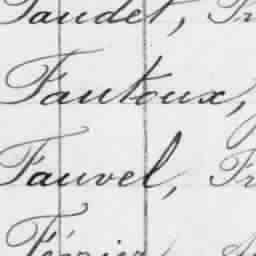 Faudet, Fr
Fautoux,
Fauvel, Fr
Février